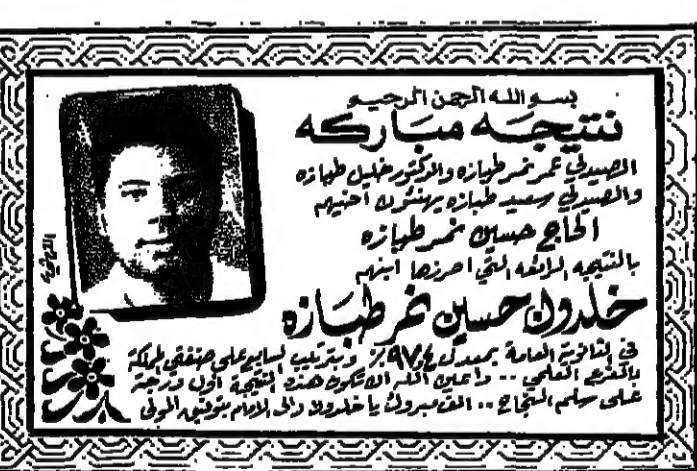 بسم الله الرحمن الرحيم
نتيجه مباركه
الصيدلي عمر نمر طبازه والدكتور خليل طبازه
والصيدلي سعيد طبازه يهنئون اخيهم
الحاج حسين نمر طبازه
بالنتيجه الرائعه التي احرزها ابنهم
خلدون حسين نمر طبازه
في الثانوية العامة بمعدل ٩٧٫٤٪ وبترتيب السابع على ضفتي المملكة
بالفرع العلمي .. داعين الله ان تكون هذه النتيجة اول درجة
على سلم النجاح .. الف مبروك يا خلدون والى الامام بتوفيق المولى